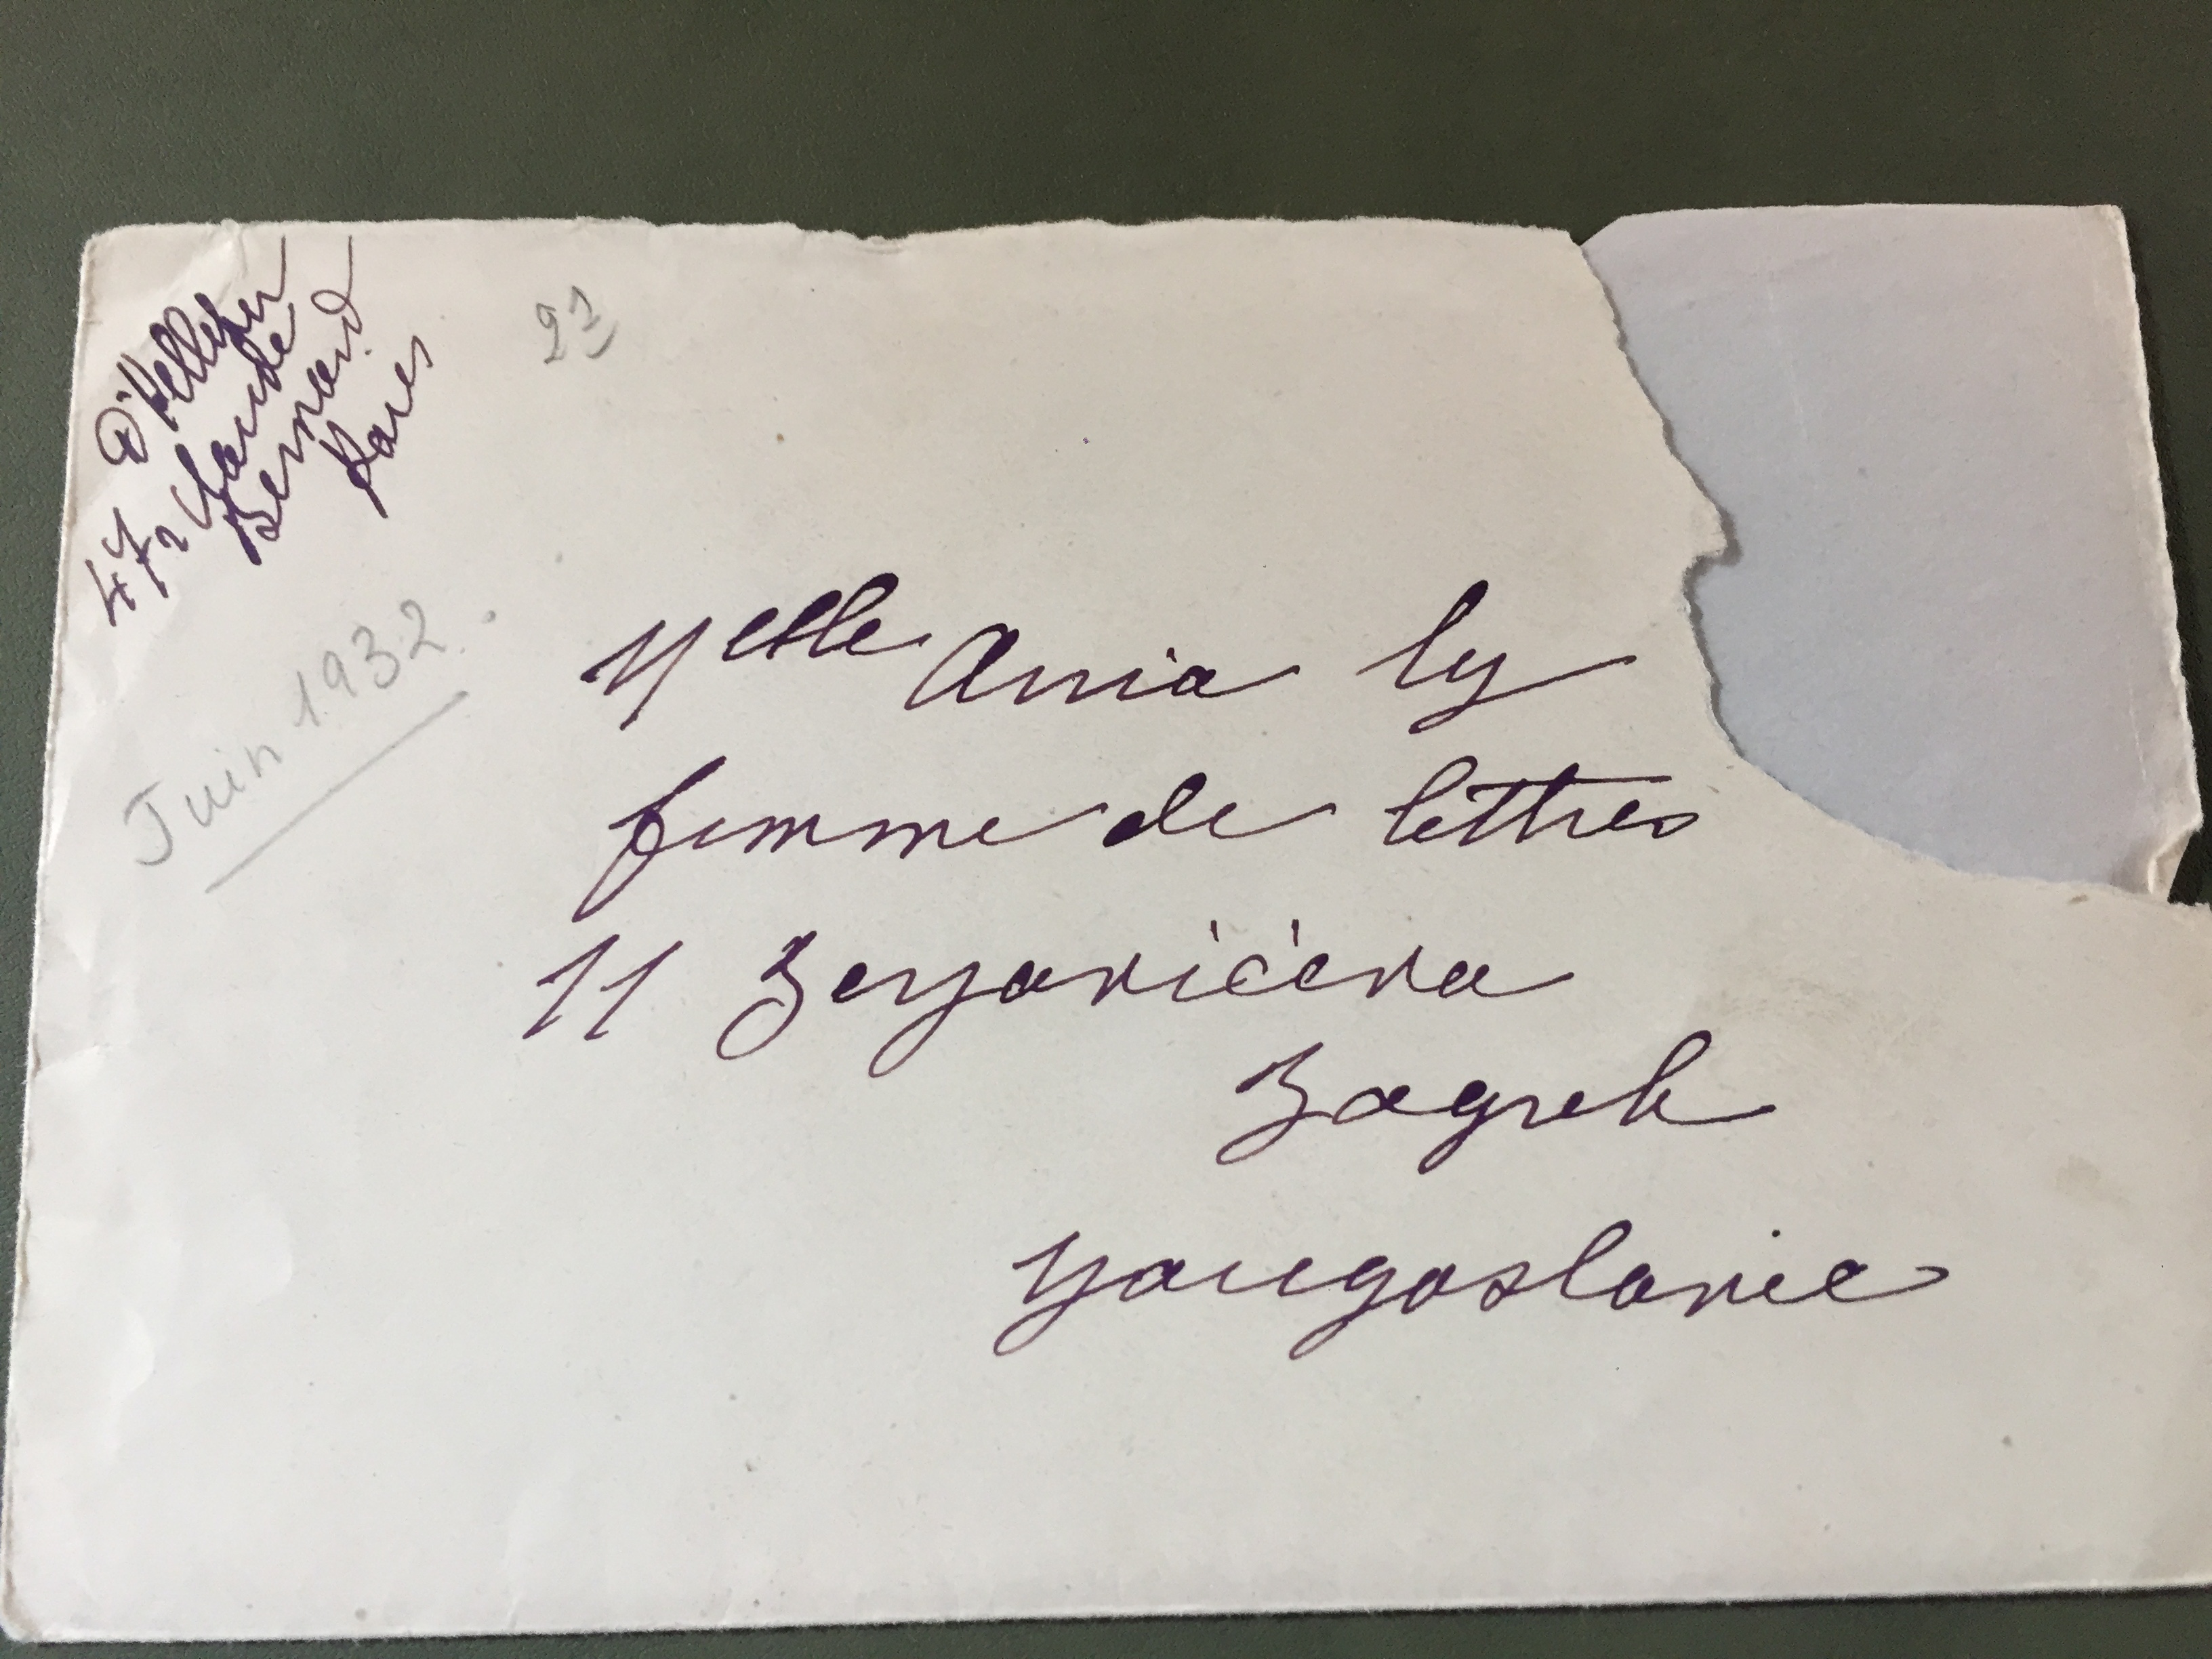 Dr Pelletier
47 r Claude
Bernard
Paris
Juin 1932.
Melle Ania ly
femme de lettres
11 Zerjavićeva
Zagreb
Yougoslavie